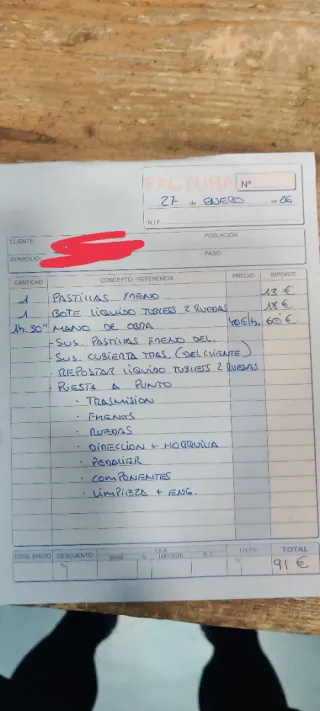 FACTURA Nº
27 de ENERO de 26
N.I.F.
CLIENTE
POBLACIÓN
DOMICILIO
PAGO
CANTIDAD CONCEPTO - REFERENCIA PRECIO IMPORTE
1 PASTILLAS FRENO 13 €
1 BOTE LÍQUIDO TUBLESS 2 RUEDAS 18 €
1h.30" MANO DE OBRA 40€/h. 60 €
- SUS. PASTILLAS FRENO DEL.
- SUS. CUBIERTA TRAS. (DEL CLIENTE)
- REPOSTAR LÍQUIDO TUBLESS 2 RUEDAS
- PUESTA A PUNTO
· TRASMISION
· FRENOS
· RUEDAS
· DIRECCION + HORQUILLA
· PEDALIER
· COMPONENTES
· LIMPIEZA + ENG.
TOTAL BRUTO DESCUENTO I.V.A. BASE % IMPORTE R.E. I.R.P.F. TOTAL
% %
91 €